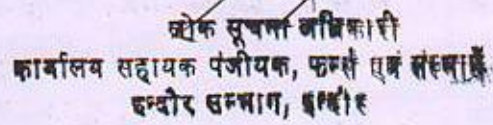 लोक सूचना अधिकारी
कार्यालय सहायक पंजीयक, फर्म्स एवं संस्थाऐं
इन्दौर सम्भाग, इन्दौर